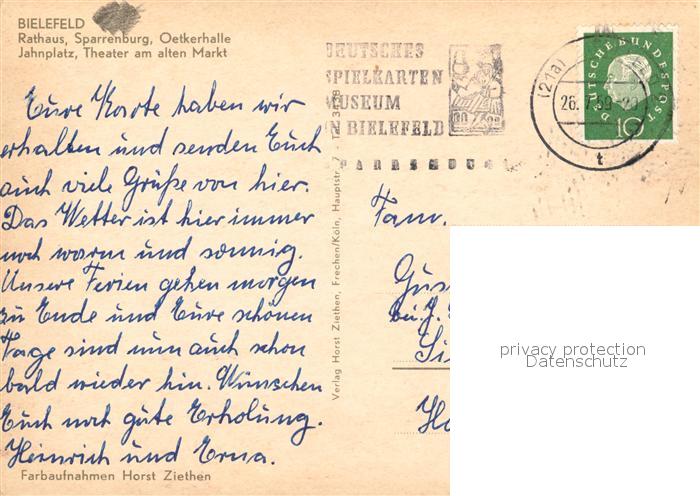 BIELEFELD
Rathaus, Sparrenburg, Oetkerhalle
Jahnplatz, Theater am alten Markt
Eure Karte haben wir
erhalten und senden Euch
auch viele Grüße von hier.
Das Wetter ist hier immer
noch warm und sonnig.
Unsere Ferien gehen morgen
zu Ende und Eure schönen
Tage sind nun auch schon
bald wieder hin. Wünschen
Euch noch gute Erholung.
Heinrich und Erna.
Farbaufnahmen Horst Ziethen
Verlag Horst Ziethen, Frechen/Köln, Hauptstr. 7
DEUTSCHES
SPIELKARTEN
MUSEUM
IN BIELEFELD
(21a)
26.7.59-20
t
DEUTSCHE BUNDESPOST
10
Fam.
Gus
bei J.
Si
Ha
privacy protection
Datenschutz